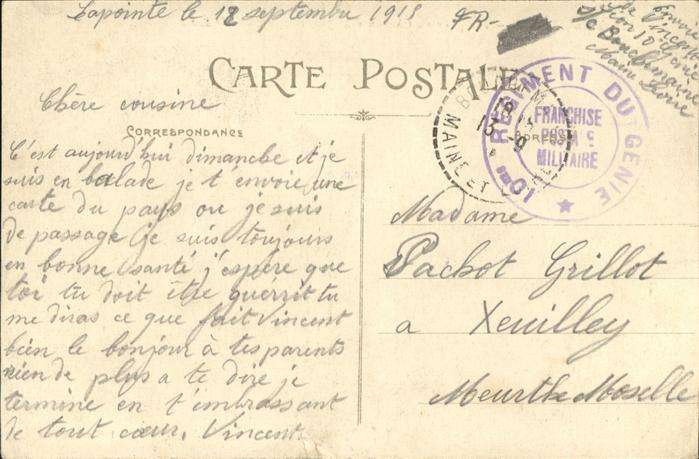 Lapointe le 12 septembre 1915
FR-
CARTE POSTALE
Chère cousine
CORRESPONDANCE
C'est aujourd'hui dimanche et je
suis en balade je t'envoie une
carte du pays ou je suis
de passage je suis toujours
en bonne santé j'espère que
toi tu doit être guérrit tu
me diras ce que fait Vincent
bien le bonjour à tes parents
rien de plus a te dire je
termine en t'embrassant
de tout cœur. Vincent
Envoi
10
Bouchemaine
Maine Loire
10me REGIMENT DU GENIE
FRANCHISE
POSTALE
MILITAIRE
MAINE ET
13 -9
Madame
Pachot Grillot
a Xeuilley
Meurthe Moselle